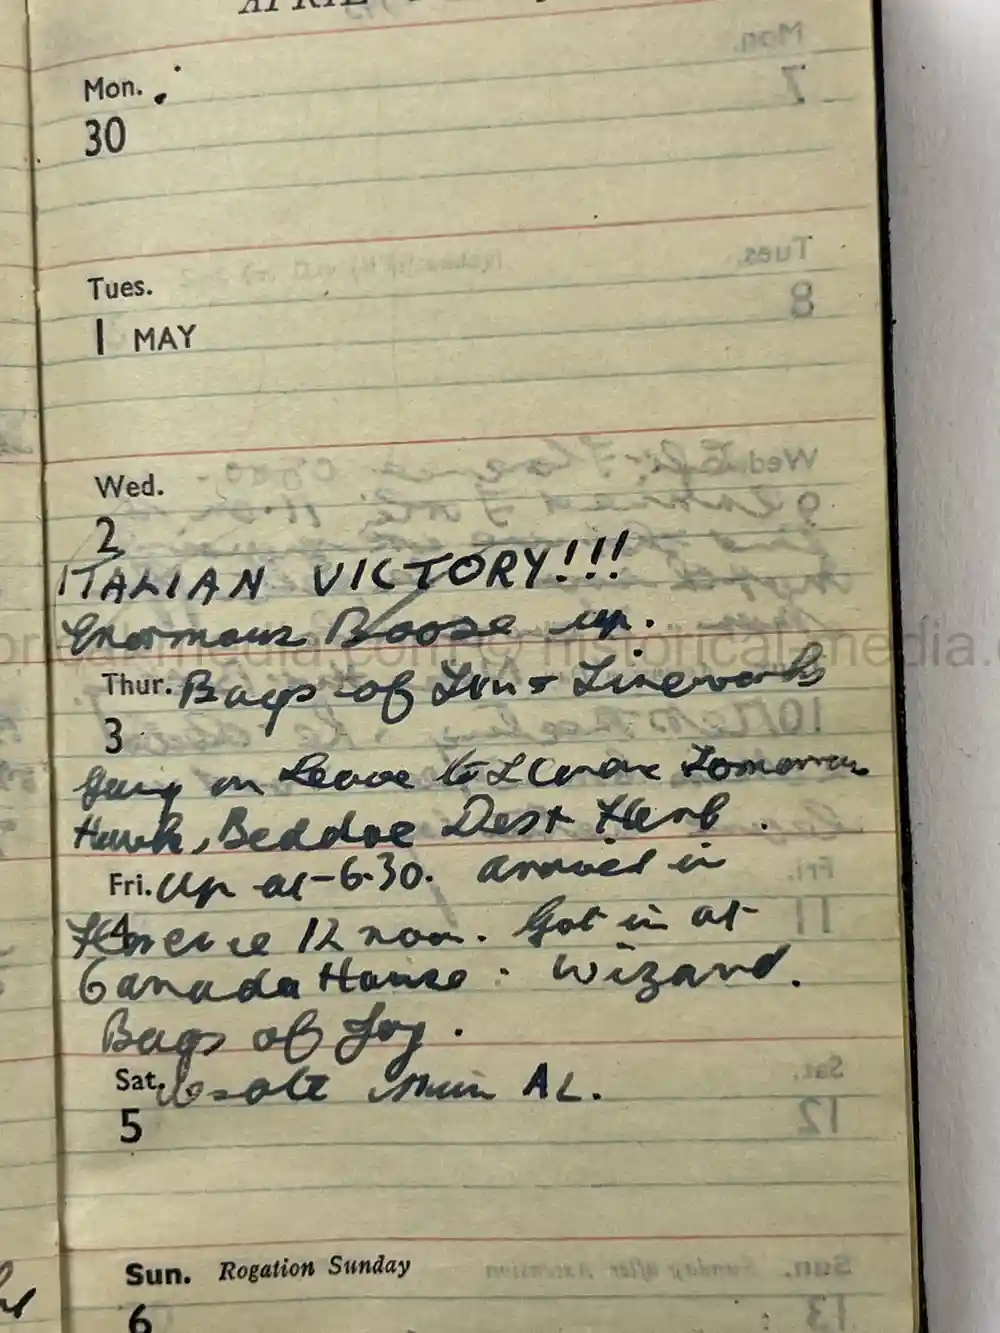 APRIL
Mon.
30
Tues.
1 MAY
Wed.
2
ITALIAN VICTORY!!!
Enormous Booze up.
Thur. Bags of Fun & Fireworks
3
Going on Leave to Florence Tomorrow
Hawk, Beddoe Dest Herb.
Fri. Up at 6.30. arrived in
4
Florence 12 noon. Got in at
Canada House: Wizard.
Bags of Joy.
Sat. Wrote Mum AL.
5
Sun. Rogation Sunday
6
historical-media.com © historical-media.co